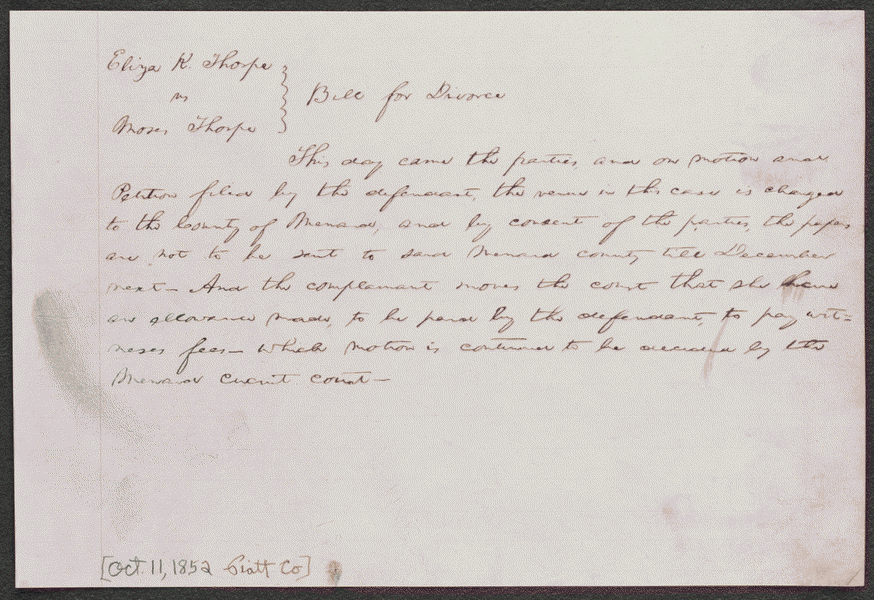 Eliza K. Thorpe
vs
Moses Thorpe
Bill for Divorce
This day came the parties, and on motion and
Petition filed by the defendant, the venue in this case is changed
to the County of Menard, and by consent of the parties, the papers
are not to be sent to said Menard county till December
next— And the complainant moves the court that she have
an allowance made, to be paid by the defendant, to pay wit=
nesses fees— which motion is continued to be decided by the
Menard circuit court—
[Oct. 11, 1852 Piatt Co]